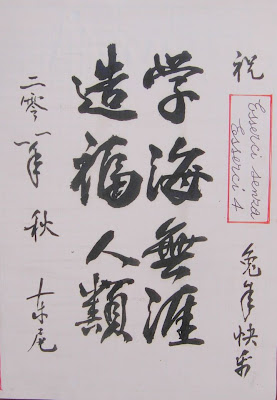 祝
Esserci senza
Esserci 4
兔年快乐
学海無涯
造福人類
二零一一年 秋